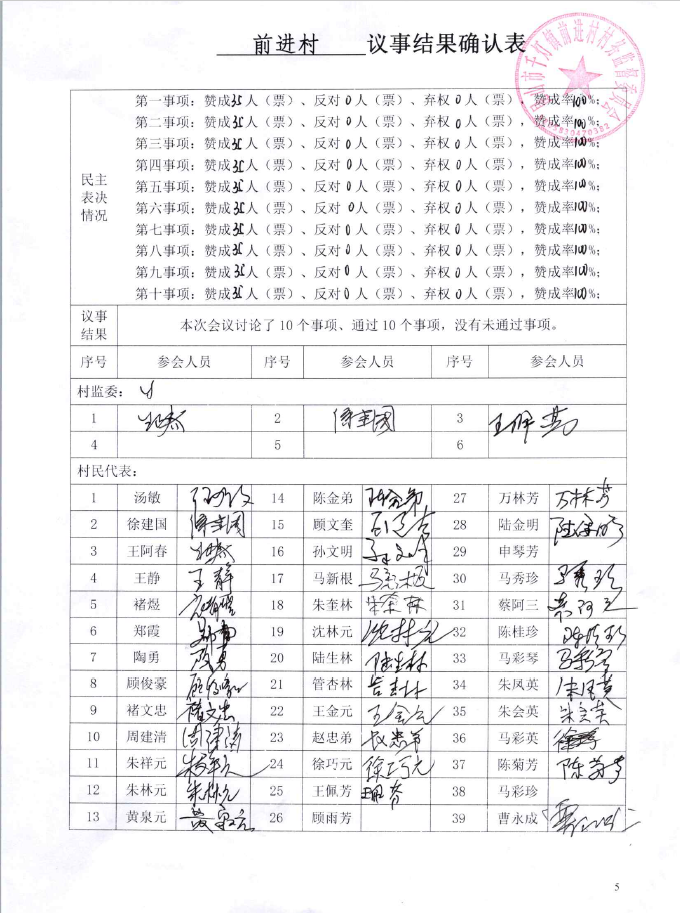 前进村 议事结果确认表
民主表决情况
第一事项：赞成35人（票）、反对0人（票）、弃权0人（票），赞成率100%；
第二事项：赞成35人（票）、反对0人（票）、弃权0人（票），赞成率100%；
第三事项：赞成35人（票）、反对0人（票）、弃权0人（票），赞成率100%；
第四事项：赞成35人（票）、反对0人（票）、弃权0人（票），赞成率100%；
第五事项：赞成35人（票）、反对0人（票）、弃权0人（票），赞成率100%；
第六事项：赞成35人（票）、反对0人（票）、弃权0人（票），赞成率100%；
第七事项：赞成35人（票）、反对0人（票）、弃权0人（票），赞成率100%；
第八事项：赞成35人（票）、反对0人（票）、弃权0人（票），赞成率100%；
第九事项：赞成35人（票）、反对0人（票）、弃权0人（票），赞成率100%；
第十事项：赞成35人（票）、反对0人（票）、弃权0人（票），赞成率100%；
议事结果 本次会议讨论了10个事项、通过10个事项，没有未通过事项。
序号 参会人员 序号 参会人员 序号 参会人员
村监委：
1 2 徐建国 3 王佩芳
4 5 6
村民代表：
1 汤敏 14 陈金弟 陈金弟 27 万林芳 万林芳
2 徐建国 徐建国 15 顾文奎 28 陆金明
3 王阿春 16 孙文明 孙文明 29 申琴芳
4 王静 王静 17 马新根 30 马秀珍 马秀珍
5 褚煜 18 朱奎林 朱奎林 31 蔡阿三 蔡阿三
6 郑霞 19 沈林元 沈林元 32 陈桂珍 陈桂珍
7 陶勇 20 陆生林 陆生林 33 马彩琴
8 顾俊豪 21 管杏林 34 朱凤英 朱凤英
9 褚文忠 褚文忠 22 王金元 王金元 35 朱会英
10 周建清 周建清 23 赵忠弟 赵忠弟 36 马彩英
11 朱祥元 24 徐巧元 徐巧元 37 陈菊芳 陈菊芳
12 朱林元 朱林元 25 王佩芳 王佩芳 38 马彩珍
13 黄泉元 黄泉元 26 顾雨芳 39 曹永成
5